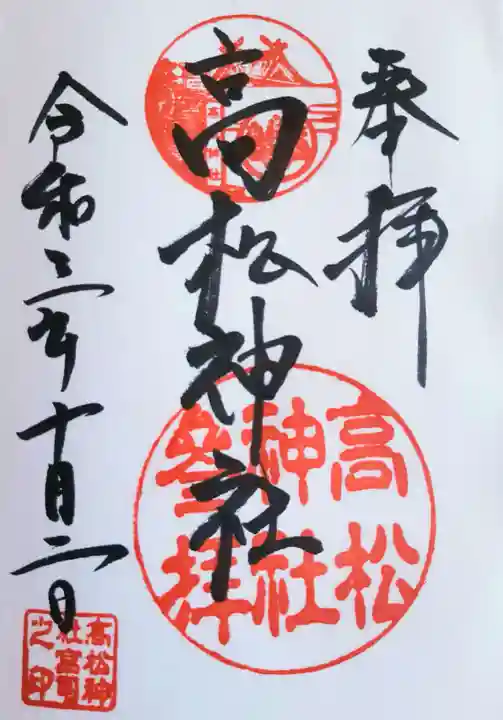 奉拝
高松神社
令和三年十月二日
高松
神社
参拝
高松神
社宮司
之印